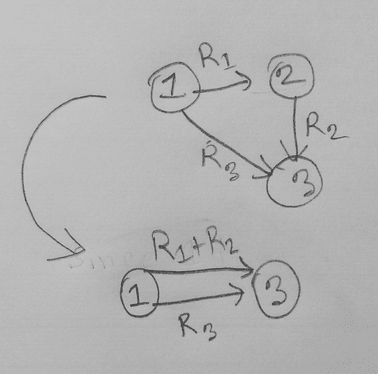 R1
1 2
R2
R3
3
R1+R2
1 3
R3